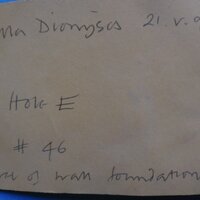 Dionysos 21.V.
Hole E
# 46
of wall foundation